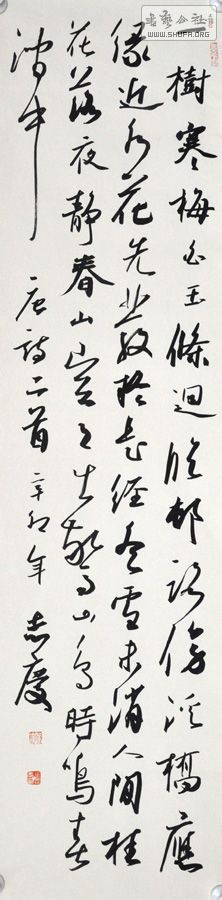 書藝公社
WWW.SHUFA.ORG
一樹寒梅白玉條迥臨邨路傍溪橋應
緣近水花先發疑是經冬雪未消人間桂
花落夜靜春山空月出驚山鳥時鳴春
澗中 唐詩二首 辛卯年 志慶